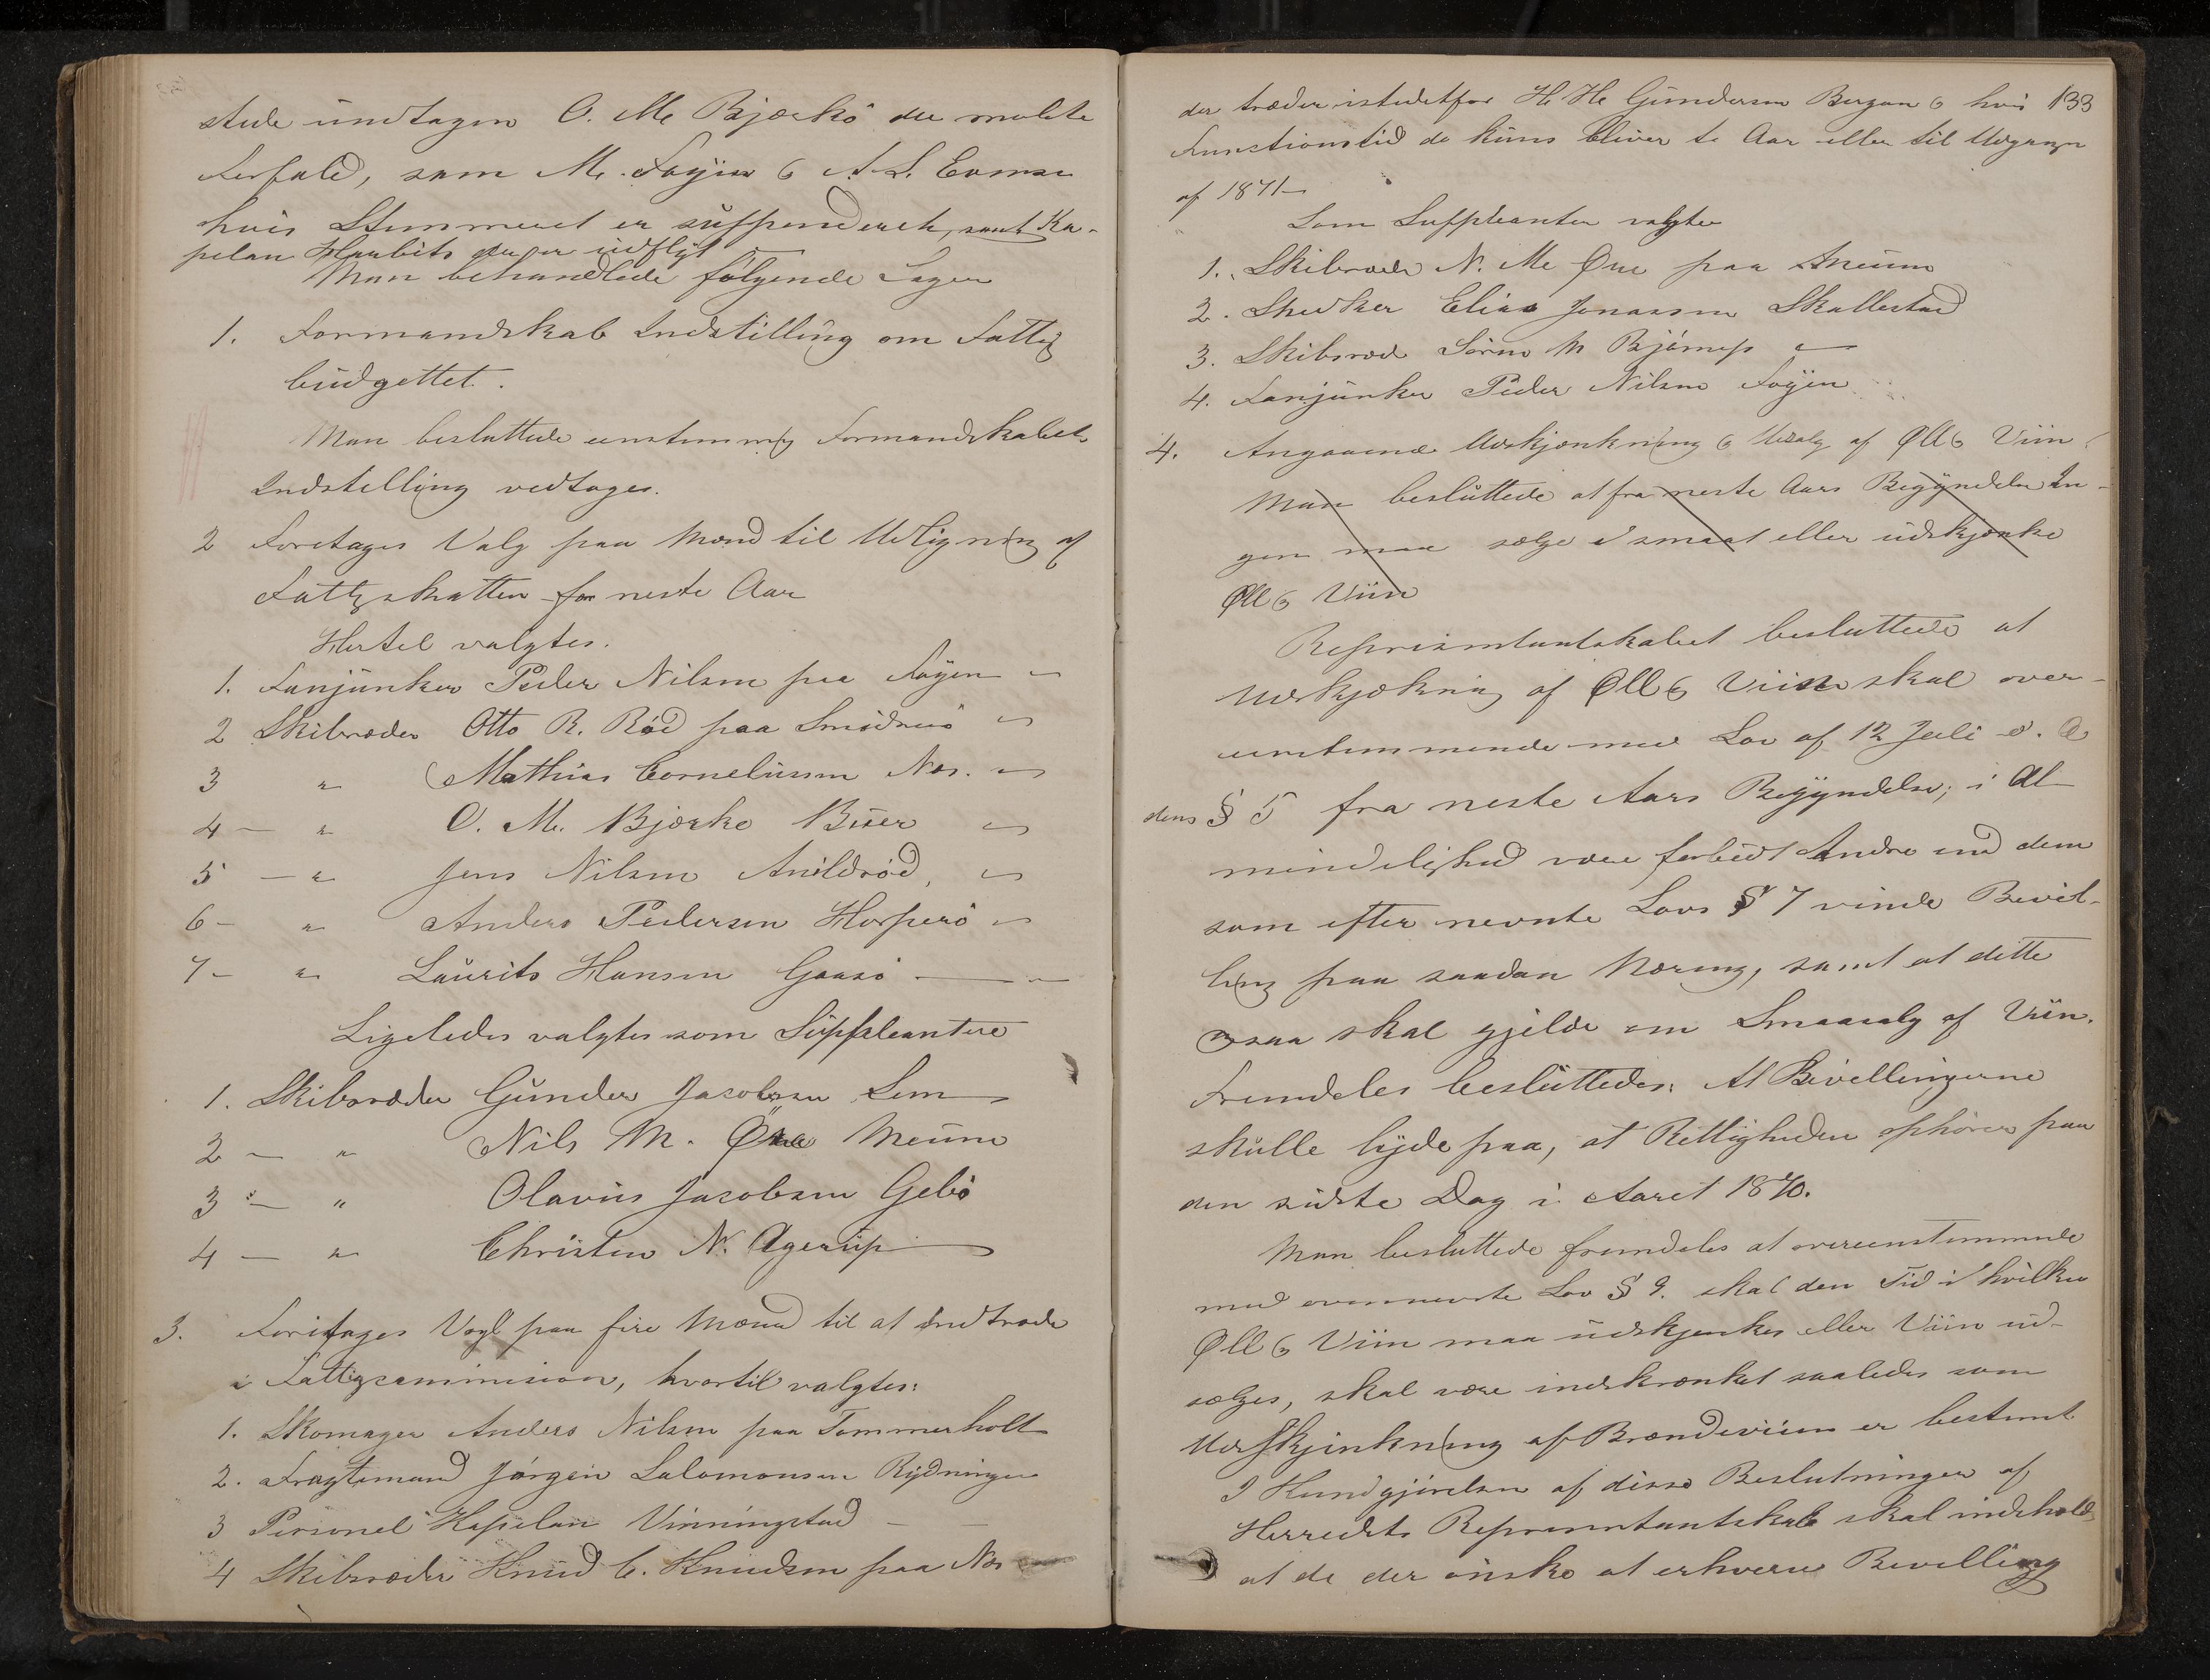 stede undtagen O. M. Bjærkø der meldte
Forfald, sam M. Føyen & A. L. Evensen
hvis Stemmeret er suspenderet, samt Ka-
pelan Haarbits der er udflyt
Man behandlede følgende Sager
1. Formandskab Indstilling om Fattig
budgettet.
Man besluttede eenstemmig Formandskabets
Indstelling vedtages.
2 Foretages Valg paa Mænd til Udligning af
Fattigskatten for neste Aar
Hertil valgtes.
1. Fanjunker Peder Nilsen paa Føyen
2 Skibsreder Otto R. Rød paa Smidsrød
3 " Mathias Corneliussen Nes.
4 — " O. M. Bjærkø Buer
5 — " Jens Nilsen Arildsrød,
6 — " Anders Pedersen Hosperø
7 — " Laurits Hansen Gaasø
Ligeledes valgtes som Suppleantere
1. Skibsreder Gunder Jacobsen Lem
2 — " Nils M. Øre Meum
3 — " Olavus Jacobsen Gebø
4 — " Christen N. Agerup
3. Foretages Vagl paa fire Mænd til at indtræde
i Fattigcommision, hvortil valgtes:
1. Skomager Anders Nilsen paa Tommerholt
2. Fragtemand Jørgen Salomonsen Rydningen
3 Personel Kapelan Vinningstad —
4 Skibsreder Knud C. Knudsen paa Nes
133
der træder istedetfor H. H. Gundersen Bergan & hvis
Functionstid da kuns bliver to Aar eller til Udgangen
af 1871
Som Suppleanter valgtes
1. Skibsreder N. M. Øre paa Meum
2. Snedker Elias Jonassen Skallestad
3. Skibsred Søren M Bjørnes
4. Fanjunker Peder Nilsen Føyen
4. Angaaende Udskjænkning & Udsalg af Øll & Viin
Man besluttede at fra neste Aars Begyndelse In-
gen maa sælge i smaat eller udskjænke
Øll & Viin
Representantskabet besluttede at
Udskjækning af Øll & Viin skal over-
eenstemmende med Lov af 12 Juli d. A
dens § 5 fra neste Aars Begyndelse, i Al-
mindelighed være forbudt Andre end dem
som efter nevnte Lovs § 7 vinde Bevil-
ling paa saadan Næring, samt at dette
ogsaa skal gjelde om Smaasalg af Viin.
Fremdeles besluttedes: At Bevellingerne
skulle lyde paa, at Rettigheden ophører paa
den sidste Dag i Aaret 1870.
Man besluttede fremdeles at overeenstemmende
med ovennevnte Lov § 9. skal den Tid i hvilken
Øll & Viin maa udskjenkes eller Viin ud-
sælges, skal være indskrænket saaledes som
Udskjenkning af Brændeviin er bestemt
I Kundgjørelsen af disse Beslutninger af
Herredets Representantskab skal indeholdes
at de der ønske at erhverve Bevelling